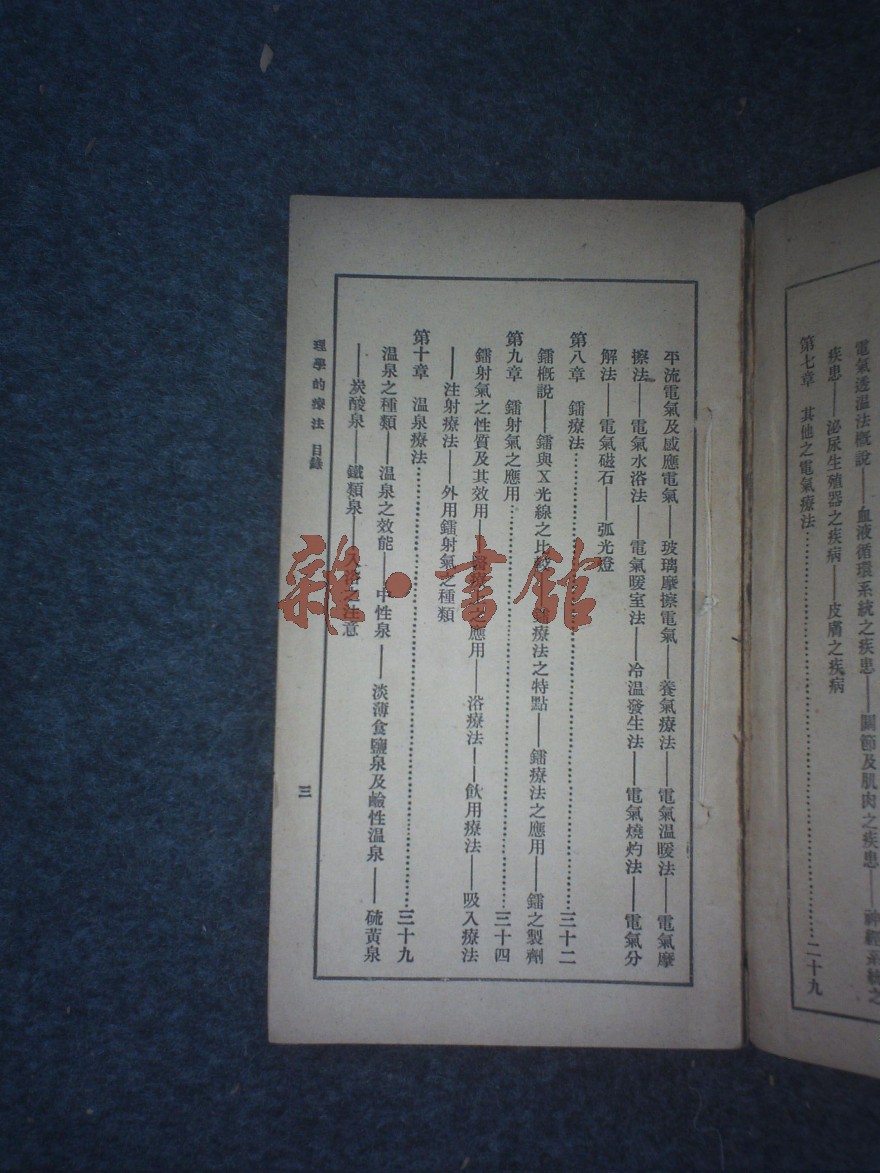 電氣透溫法概說——血液循環系統之疾患——關節及肌肉之疾患——神經系統之
疾患——泌尿生殖器之疾病——皮膚之疾病
第七章 其他之電氣療法……二十九
平流電氣及感應電氣——玻璃摩擦電氣——養氣療法——電氣溫暖法——電氣摩
擦法——電氣水浴法——電氣暖室法——冷溫發生法——電氣燒灼法——電氣分
解法——電氣磁石——弧光燈
第八章 鐳療法……三十二
鐳概說——鐳與X光線之比較——鐳療法之特點——鐳療法之應用——鐳之製劑
第九章 鐳射氣之應用……三十四
鐳射氣之性質及其效用——醫療上之應用——浴療法——飲用療法——吸入療法
——注射療法——外用鐳射氣之種類
第十章 温泉療法……三十九
温泉之種類——温泉之效能——中性泉——淡薄食鹽泉及鹼性温泉——硫黃泉
——炭酸泉——鐵類泉——入浴之注意
理學的療法 目錄
三
雜·書館